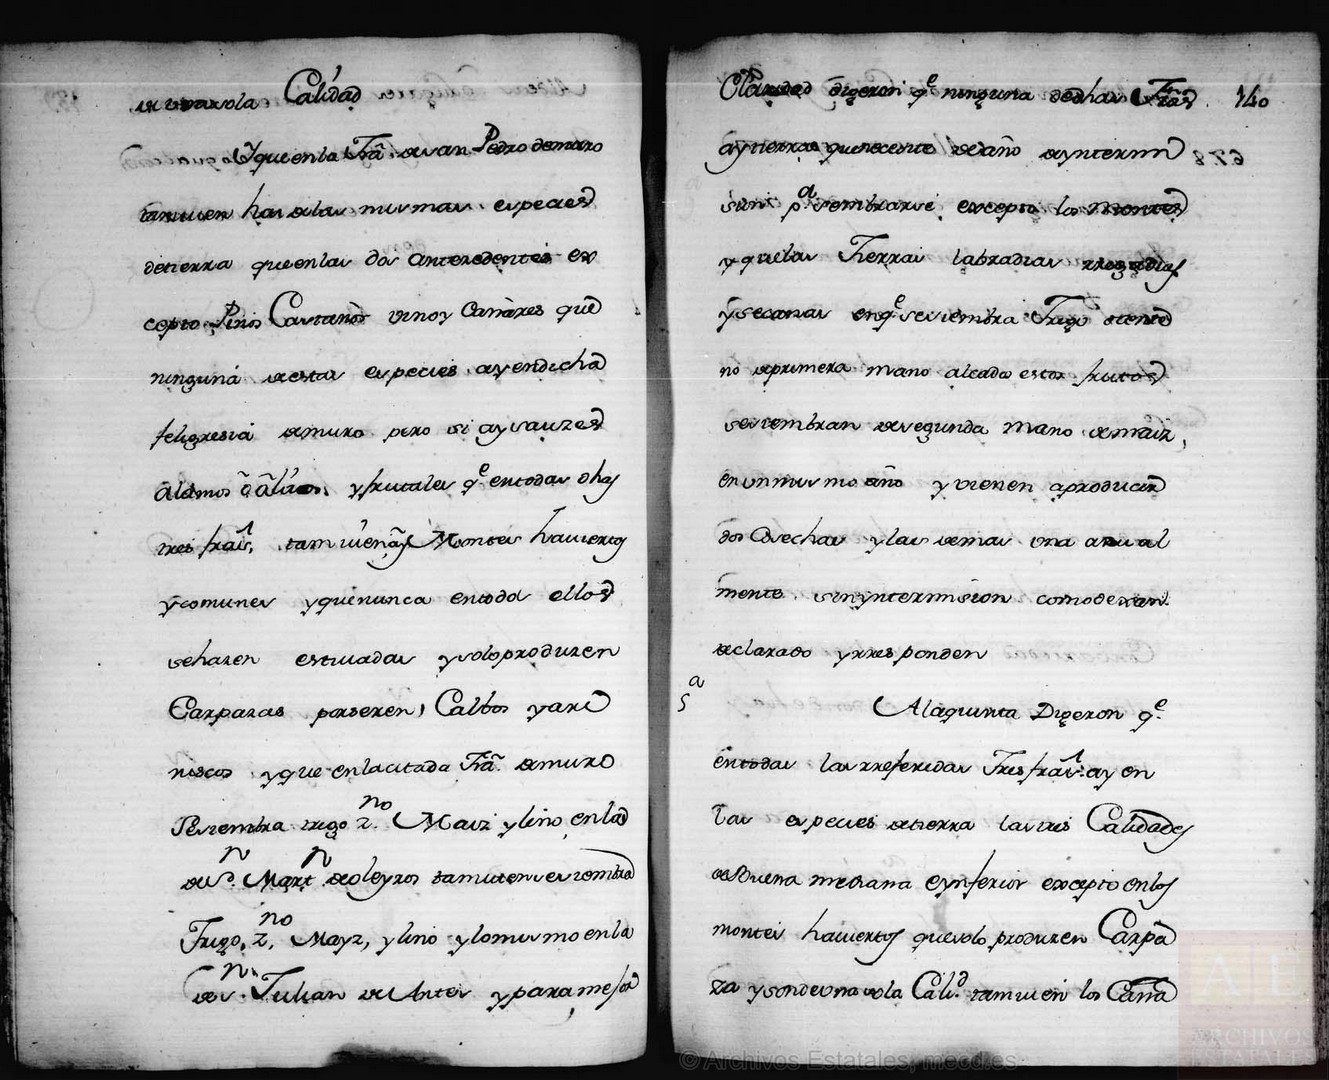 de una sola Calidad
Y que en la Fra. de san Pedro de muro
tamuien hai de las mismas especies
de tierra que en las dos Antezedentes ex
cepto Pinos Castaños vino y Cañares que
ninguna de estas especies ay en dicha
feligresia de muro pero si ay sauzes
alamos y frutales qe. en todas dhas
tres fras. tamuien ay Montes hauiertos
y comunes y que nunca en todos ellos
se hazen estiuadas y solo produzen
Carpazas por seren Calbos y are
niscos y que en la citada Fra. de muro
se siembra trigo zno. Maiz y lino en la
de Sn. Martn. de oleyros tamuien se siembra
Trigo, zno, Mayz, y lino y lo mismo en la
de sn. Julian de Antes y para mejor
Claridad digeron qe. ninguna de dhas Fras. 140
ay tierra que necesite de año de ynterm
sion pa. sembrarse excepto los montes
y que las Tierras labradias rregadias
y secanas en qe. se siembra Trigo zente
no de primera mano alcados estos frutos
se siembran de segunda mano de maiz,
en un mismo año y vienen a producir
dos Cosechas y las demas una anual
mente sin yntermision como dexan
declarado y rresponden
5a
A la quinta Digeron qe.
en todas las rreferidas Tres fras. ay en
las especies de tierra las tres Calidades
de Buena mediana e ynferior excepto en los
montes hauiertos que solo produzen Carpa
za y son de una sola Calid. tamuien los Caña
© Archivos Estatales, mecd.es
AE
ARCHIVOS
ESTATALES